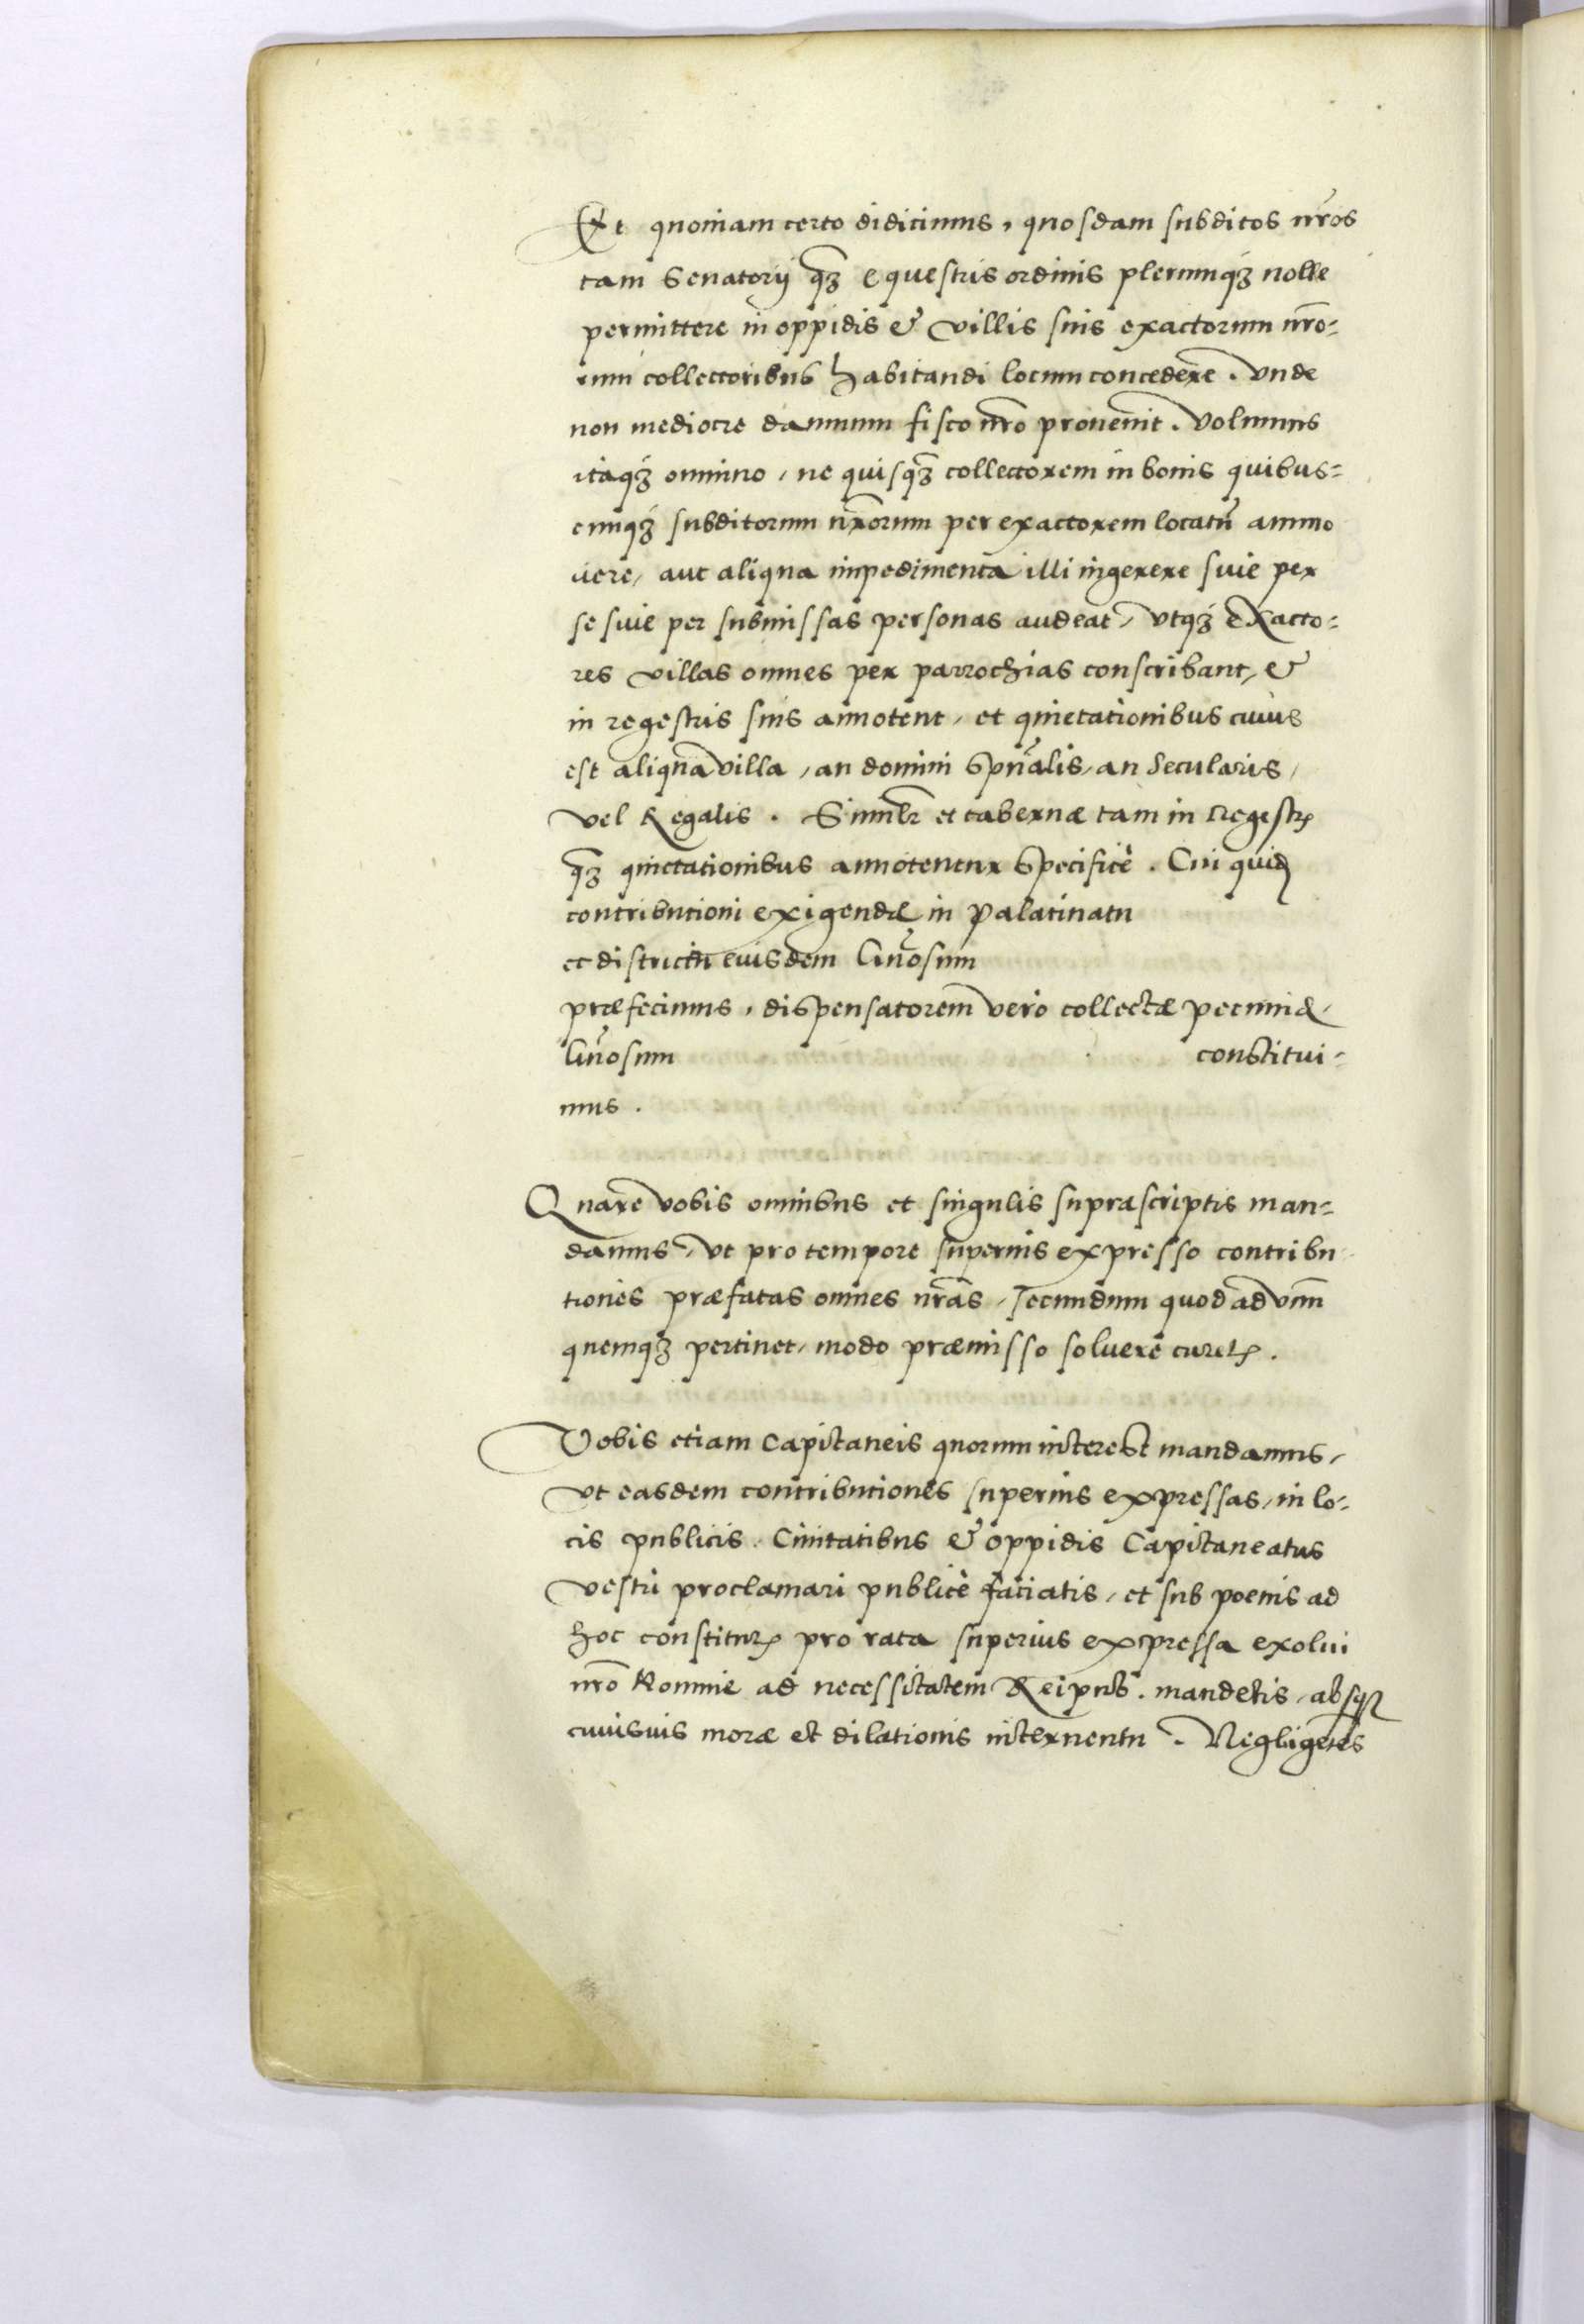 Et quoniam certo didicimus, quosdam subditos nr̃os
tam Senatorij qꝫ equestris ordinis plerumqꝫ nolle
permittere in oppidis & villis suis exactorum nr̃o-
rum collectoribus habitandi locum concedere. Vnde
non mediocre damnum fisco nr̃o prouenit. Volumus
itaqꝫ omnino, ne quisqꝫ collectorem in bonis quibus-
cunqꝫ subditorum nr̃orum per exactorem locatũ ammo
uere, aut aliqua impedimenta illi ingerere siue per
se siue per submissas personas audeat, vtqꝫ exacto-
res villas omnes per parrochias conscribant, &
in regestris suis annotent, et quietationibus cuius
est aliqua villa, an domini Spũalis, an Secularis,
vel Regalis. Similr̃ et tabernæ tam in regestꝭ
qꝫ quietationibus annotentur Specificè. Cui quidẽ
contributioni exigendæ in Palatinatu
et districtu eiusdem Gñosum
præfecimus, dispensatorem vero collectæ pecuniæ,
Gñosum constitui-
mus.
Quare vobis omnibus et singulis suprascriptis man-
damus, vt pro tempore superius expresso contribu
tiones præfatas omnes nr̃as, secundum quod ad vnũ
quemqꝫ pertinet, modo præmisso soluere curetꝭ.
Vobis etiam Capitaneis quorum interest mandamus,
vt easdem contributiones superius expressas, in lo-
cis publicis. Ciuitatibus & oppidis Capitaneatus
vestri proclamari publicè faciatis, et sub poenis ad
hoc constitutꝭ pro rata superius expressa exolui
nr̃o Nomine ad necessitatem Reipub. mandetis, absqꝫ
cuiusuis moræ et dilationis interuentu. Negligẽtes